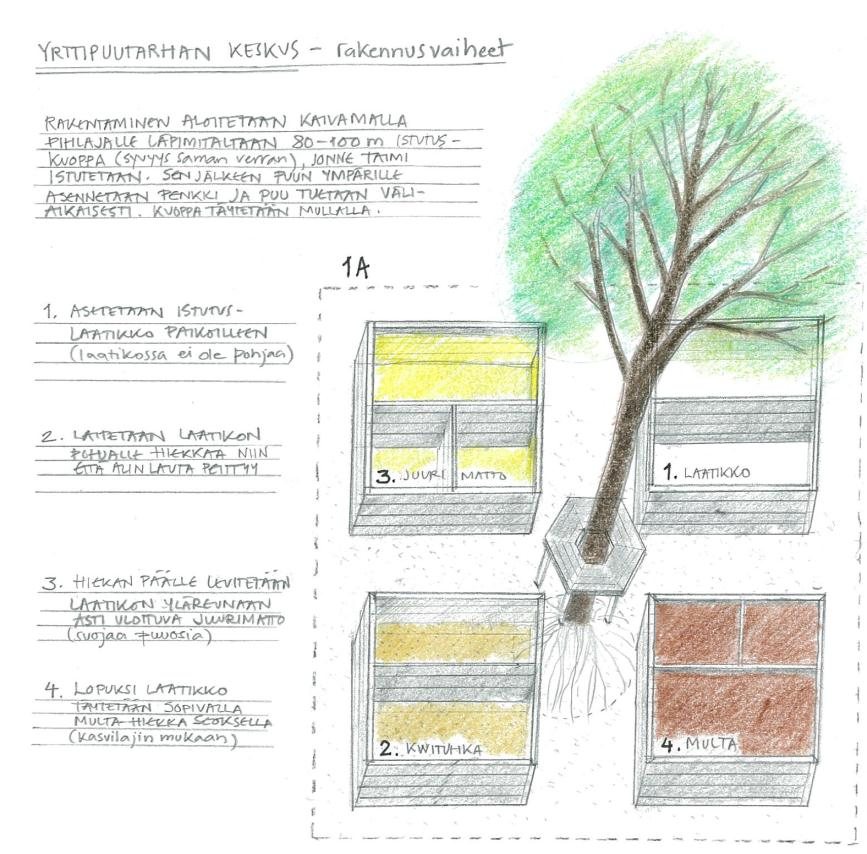 YRTTIPUUTARHAN KESKUS – rakennusvaiheet
RAKENTAMINEN ALOITETAAN KAIVAMALLA
PIHLAJALLE LÄPIMITALTAAN 80-100 m ISTUTUS-
KUOPPA (syvyys saman verran), JONNE TAIMI
ISTUTETAAN. SEN JÄLKEEN PUUN YMPÄRILLE
ASENNETAAN PENKKI JA PUU TUETAAN VÄLI-
AIKAISESTI. KUOPPA TÄYTETÄÄN MULLALLA.
1A
1. ASETETAAN ISTUTUS-
LAATIKKO PAIKOILLEEN
(laatikossa ei ole pohjaa)
2. LAITETAAN LAATIKON
POHJALLE HIEKKAA NIIN
ETTÄ ALIN LAUTA PEITTYY
3. JUURI MATTO
1. LAATIKKO
3. HIEKAN PÄÄLLE LEVITETÄÄN
LAATIKON YLÄREUNAAN
ASTI ULOTTUVA JUURIMATTO
(suojaa puuosia)
4. LOPUKSI LAATIKKO
TÄYTETÄÄN SOPIVALLA
MULTA HIEKKA SEOKSELLA
(kasvilajin mukaan)
2. KIVITUHKA
4. MULTA